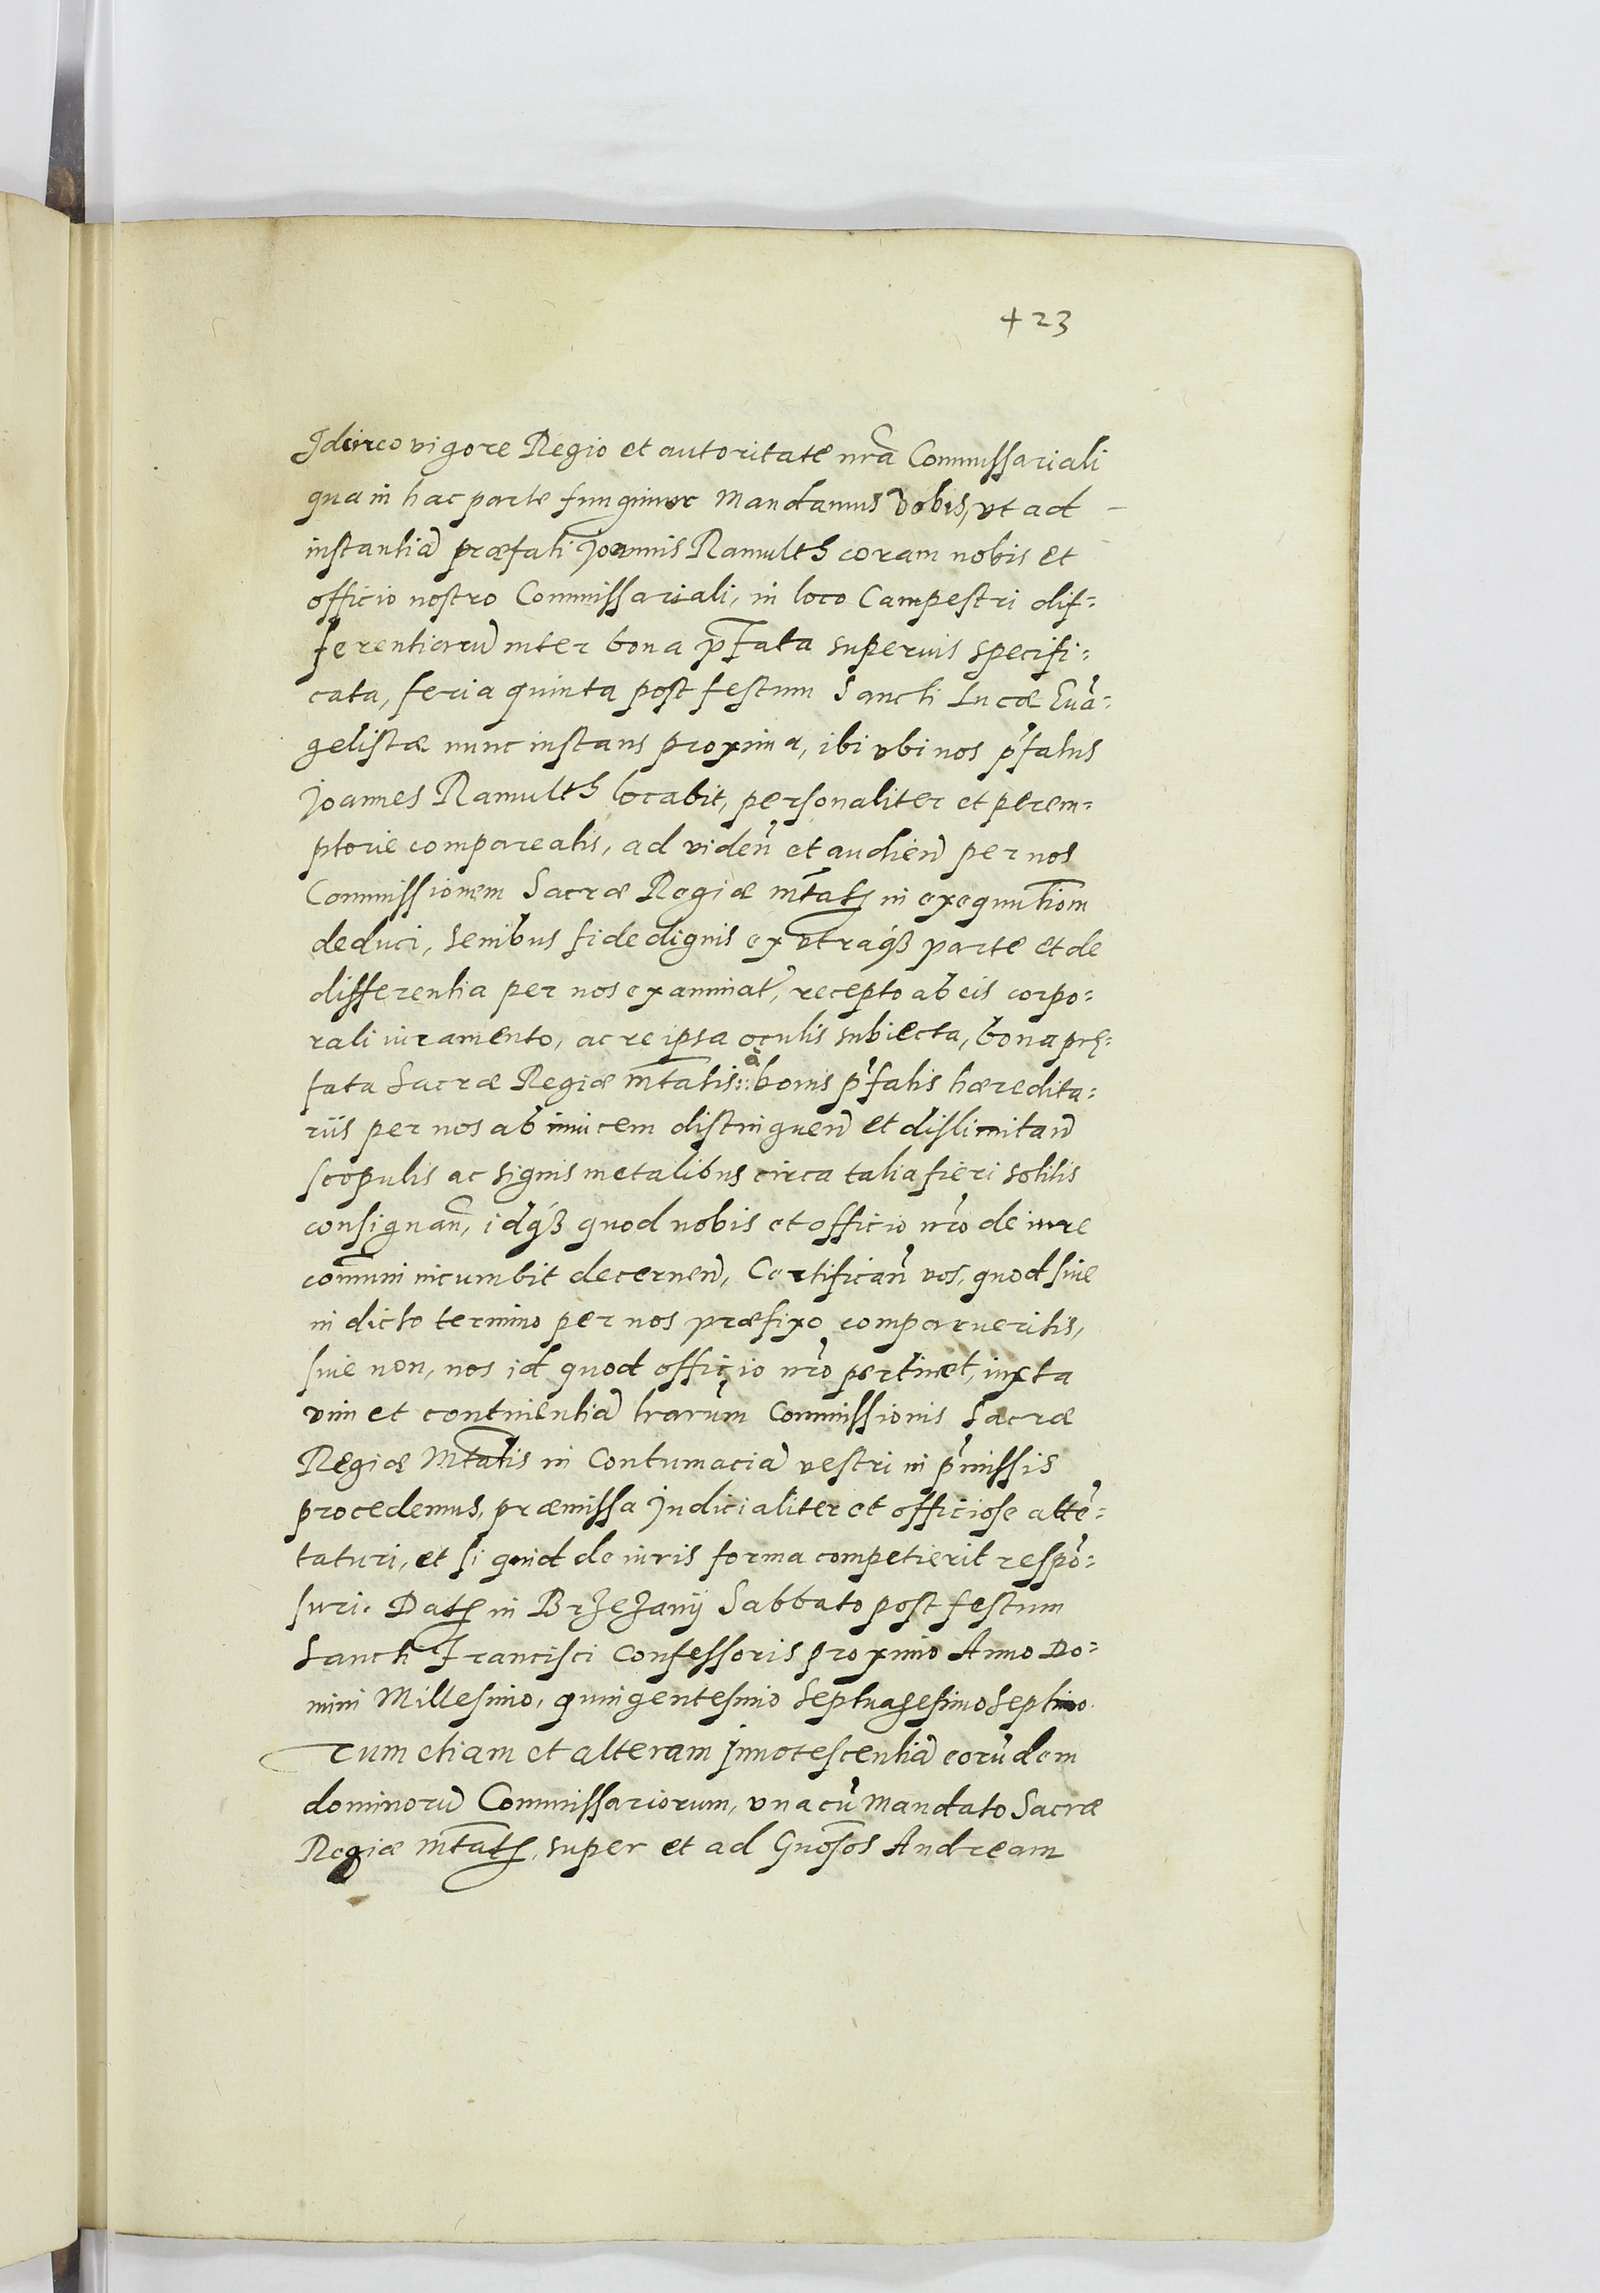 423
Idcirco vigore Regio et autoritate nr̃a Commissariali
qua in hac parte fungimur Mandamus Vobis, vt ad
instantiã præfati Joannis Ramulth coram nobis et
officio nostro Commissariali, in loco Campestri dif=
ferentiarũ inter bona p̃fata superius specifi=
cata, feria quinta post festum Sancti Lucæ Euã=
gelistæ nunc instans proxima, ibi vbi nos p̃fatus
Joannes Ramulth locabit, personaliter et perem=
ptorie compareatis, ad videñ et audieñ per nos
Commissionem Sacræ Regiæ Mt̃atꝭ in exequut̃iom
deduci, senibus fide dignis ex vtraqꝫ parte et de
differentia per nos examinat̃, recepto ab eis corpo=
rali iuramento, ac re ipsa oculis subiecta, bona præ=
fata Sacræ Regiæ Mt̃atis: à bonis p̃fatis hæredita=
riis per nos ab inuicem distingueñ et dislimitañ
scopulis ac signis metalibus circa talia fieri solitis
consignañ, idqꝫ quod nobis et officio nr̃o de iure
com̃uni incumbit decerneñ, Certificañ vos, quod siue
in dicto termino per nos præfixo comparueritis,
siue non, nos id quod officio nr̃o pertinet, iuxta
vim et continentiã lr̃arum Commissionis Sacræ
Regiæ Mt̃atis in Contumaciã vestri in p̃missis
procedemus, præmissa Judicialiter et officiose attẽ=
taturi, et si quid de iuris forma competierit respõ=
suri. Datꝭ in Brzezanÿ Sabbato post festum
Sancti Francisci Confessoris proximo Anno Do=
mini Millesimo, quingentesimo Septuagesimo Septimo.
Tum etiam et alteram Innotescentiã eorũdem
dominorũ Commissariorum, vna cũ Mandato Sacræ
Regiæ Mt̃atꝭ, super et ad Gnõsos Andream